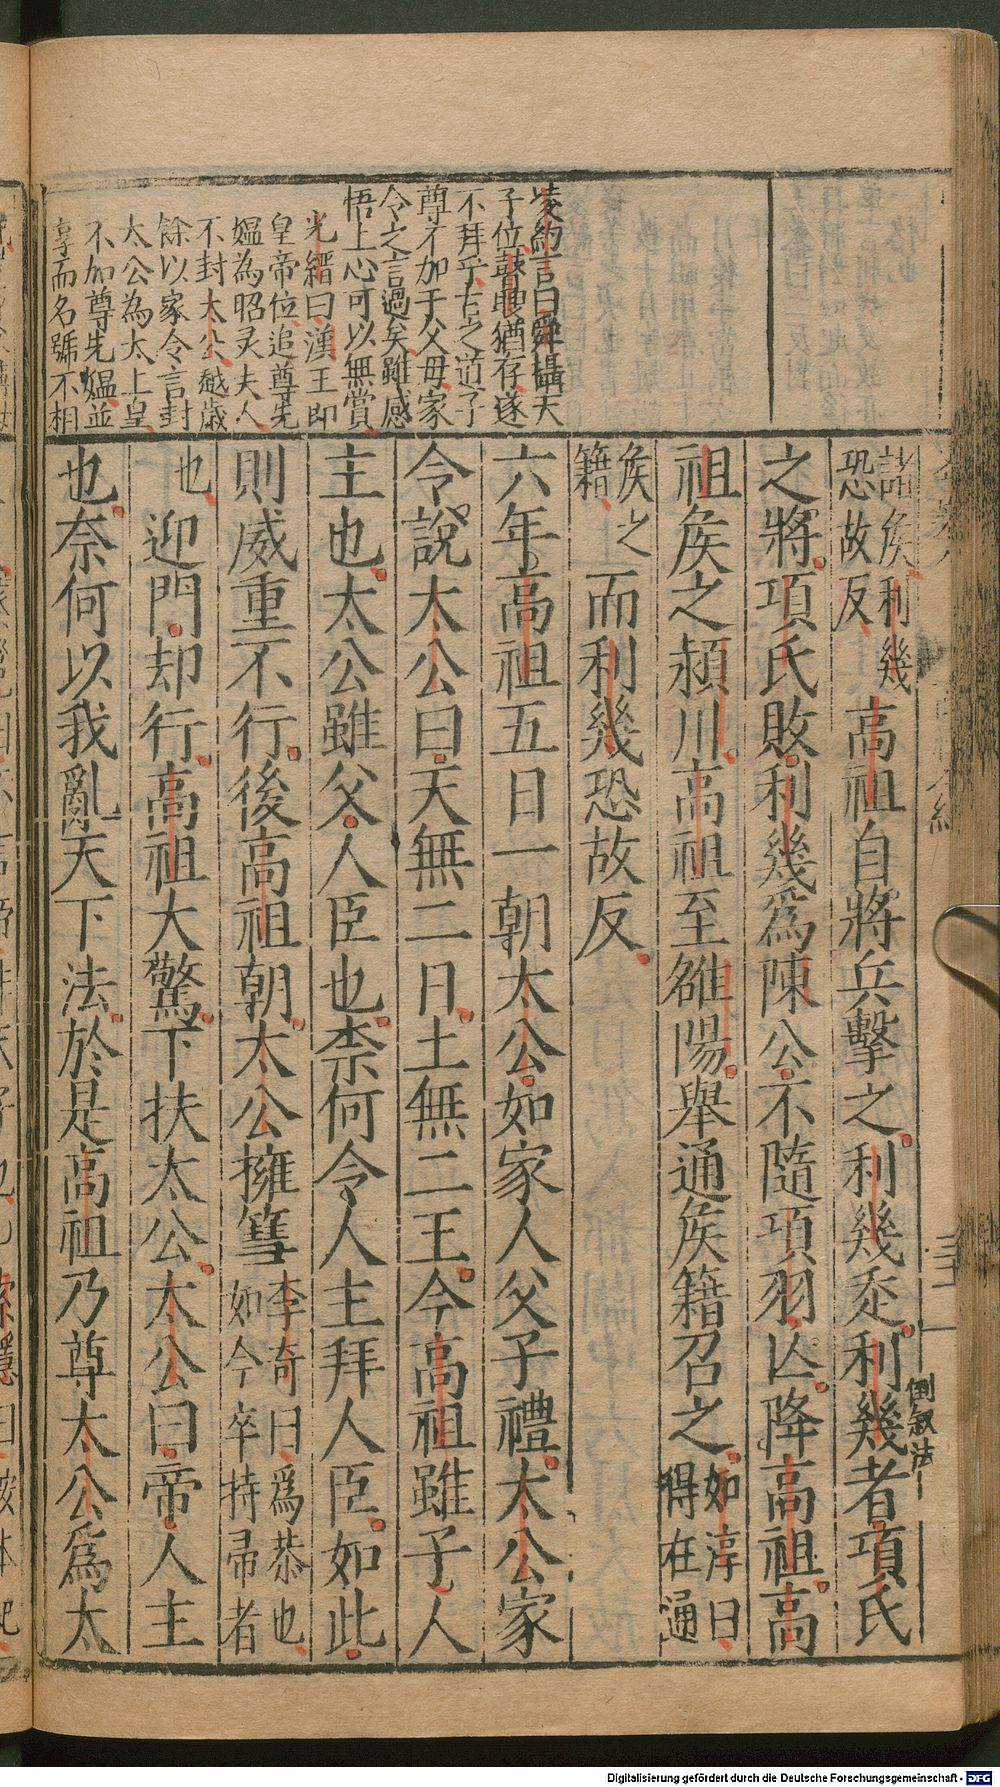 凌約言曰舜攝天
子位鼓瞍猶存遂
不拜乎古之道子
尊才加于父毋家
令之言過矣雖感
悟上心可以無賞
光縉曰漢王即
皇帝位追尊先
媼為昭灵夫人
不封太公越歲
餘以家令言封
太公為太上皇
不加尊先媼並
享而名號不相
諸矦利幾
恐故反
高祖自將兵擊之利幾走利幾者項氏
倒敘法
之將項氏敗利幾爲陳公不隨項羽亡降高祖高
祖矦之潁川高祖至雒陽舉通矦籍召之
如淳曰
得在通
矦之
籍
而利幾恐故反
六年高祖五日一朝太公如家人父子禮太公家
令說太公曰天無二日土無二王今高祖雖子人
主也太公雖父人臣也柰何令人主拜人臣如此
則威重不行後高祖朝太公擁篲
李奇曰爲恭也
如今卒持帚者
也
迎門却行高祖大驚下扶太公太公曰帝人主
也奈何以我亂天下法於是高祖乃尊太公爲太
Digitalisierung gefördert durch die Deutsche Forschungsgemeinschaft - DFG